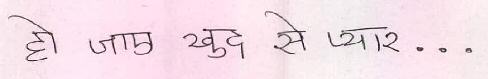 हो जाए खुद से प्यार...